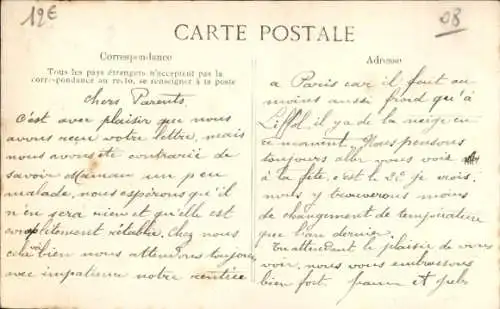 12€
08
CARTE POSTALE
Correspondance
Tous les pays étrangers n'acceptent pas la
correspondance au recto, se renseigner à la poste
Chers Parents
C'est avec plaisir que nous
avons reçu votre lettre, mais
nous avons été contrarié de
savoir Maman un peu
malade, nous espérons qu'il
n'en sera rien et qu'elle est
complètement rétablie. Chez nous
cela va bien nous attendons toujours
avec impatience notre rentrée
Adresse
a Paris car il fait au
moins aussi froid qu'à
Liffol, il y a de la neige en
ce moment. Nous pensons
toujours aller vous voir
à la fête, c'est le 22 je crois,
nous y trouverons moins
de changement de température
que l'an dernier.
En attendant le plaisir de vous
voir, nous vous embrassons
bien fort